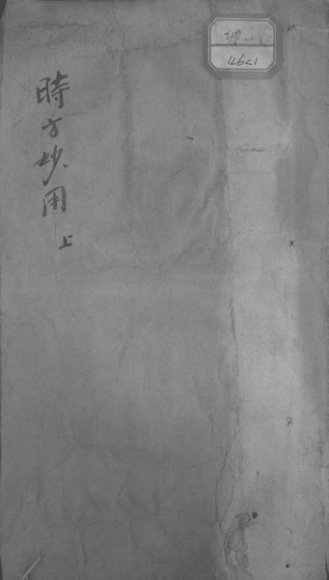 時方妙用 上
4621